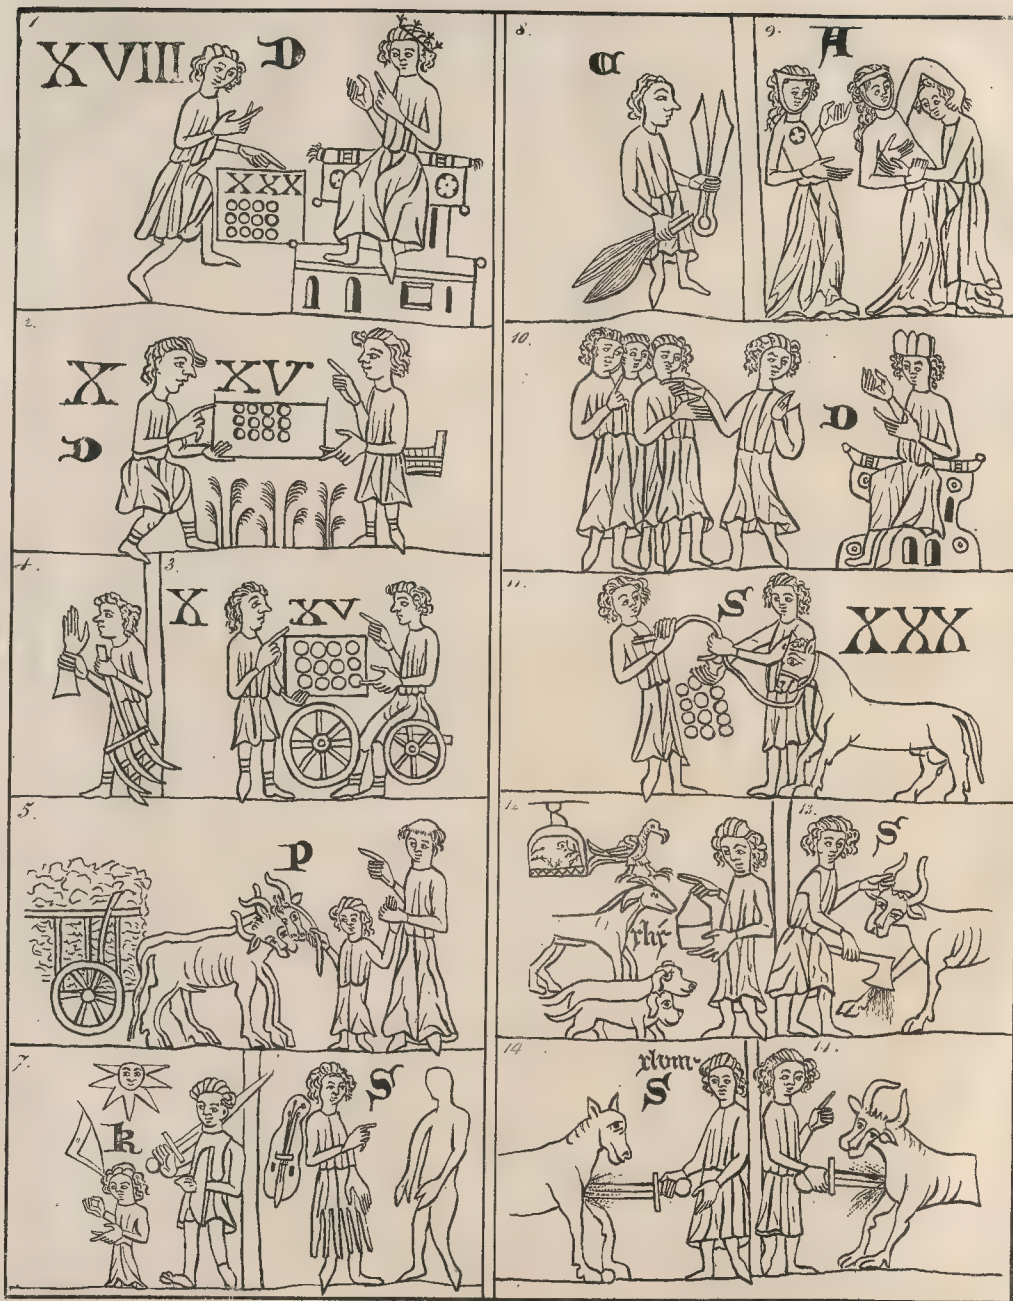 1
XVIII D
XXX
2.
X XV
D
4. 3.
X XV
5.
P
7.
k S
8. 9.
C A
10.
D
11.
S XXX
12. 13.
S
14
S